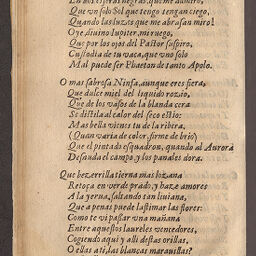 En dos esferas negras, que me admiro,
Que vn solo Sol que tengo tengan ciego,
Quando las luzes que me abrasan miro?
Oye diuino Iupiter, mi ruego,
Que por los ojos del Pastor suspiro,
Custodia de tu vaca, que vno solo
Mal puede ser Phaeton de tanto Apolo.
O mas sabrosa Ninfa, aunque eres fiera,
Que dulce miel del liquido rozio,
Que de los vasos de la blanda cera
Se distila al calor del seco estio:
Mas bella vienes tu de la ribera,
(Quan varia de color, firme de brio)
Que el pintado esquadron, quando al Aurora
Desnuda el campo, y los panales dora.
Que bezerrilla tierna mas loçana
Retoça en verde prado, y haze amores
A la yerua, saltando tan liuiana,
Que a penas puede lastimar las flores:
Como te vi passar vna mañana
Entre aquestos laureles vencedores,
Cogiendo aqui y alli destas orillas,
O ellas a ti, las blancas marauillas?